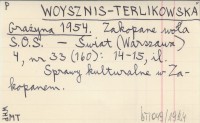 P
WOYSZNIS-TERLIKOWSKA
Grażyna 1954. Zakopane woła
S.O.S. — Świat (Warszawa)
4, nr 33 (160): 14-15, il.
Sprawy kulturalne w Za-
kopanem.
MT